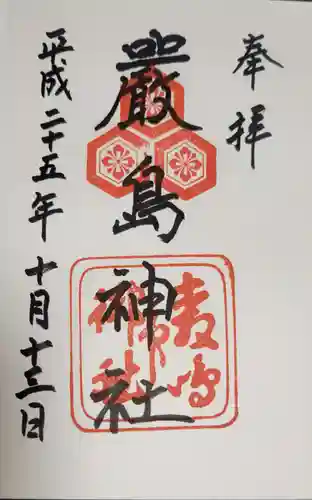 奉拝
嚴島神社
平成二十五年十月十三日